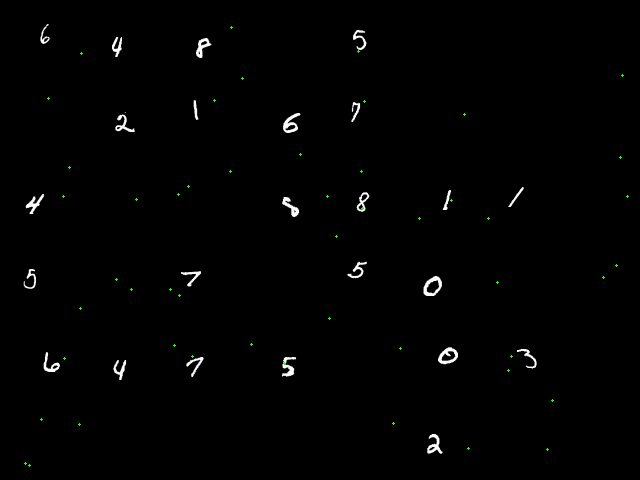 6 4 8 5
2 1 6 7
4 8 8 1 1
5 7 5 0
6 4 7 5 0 3
2